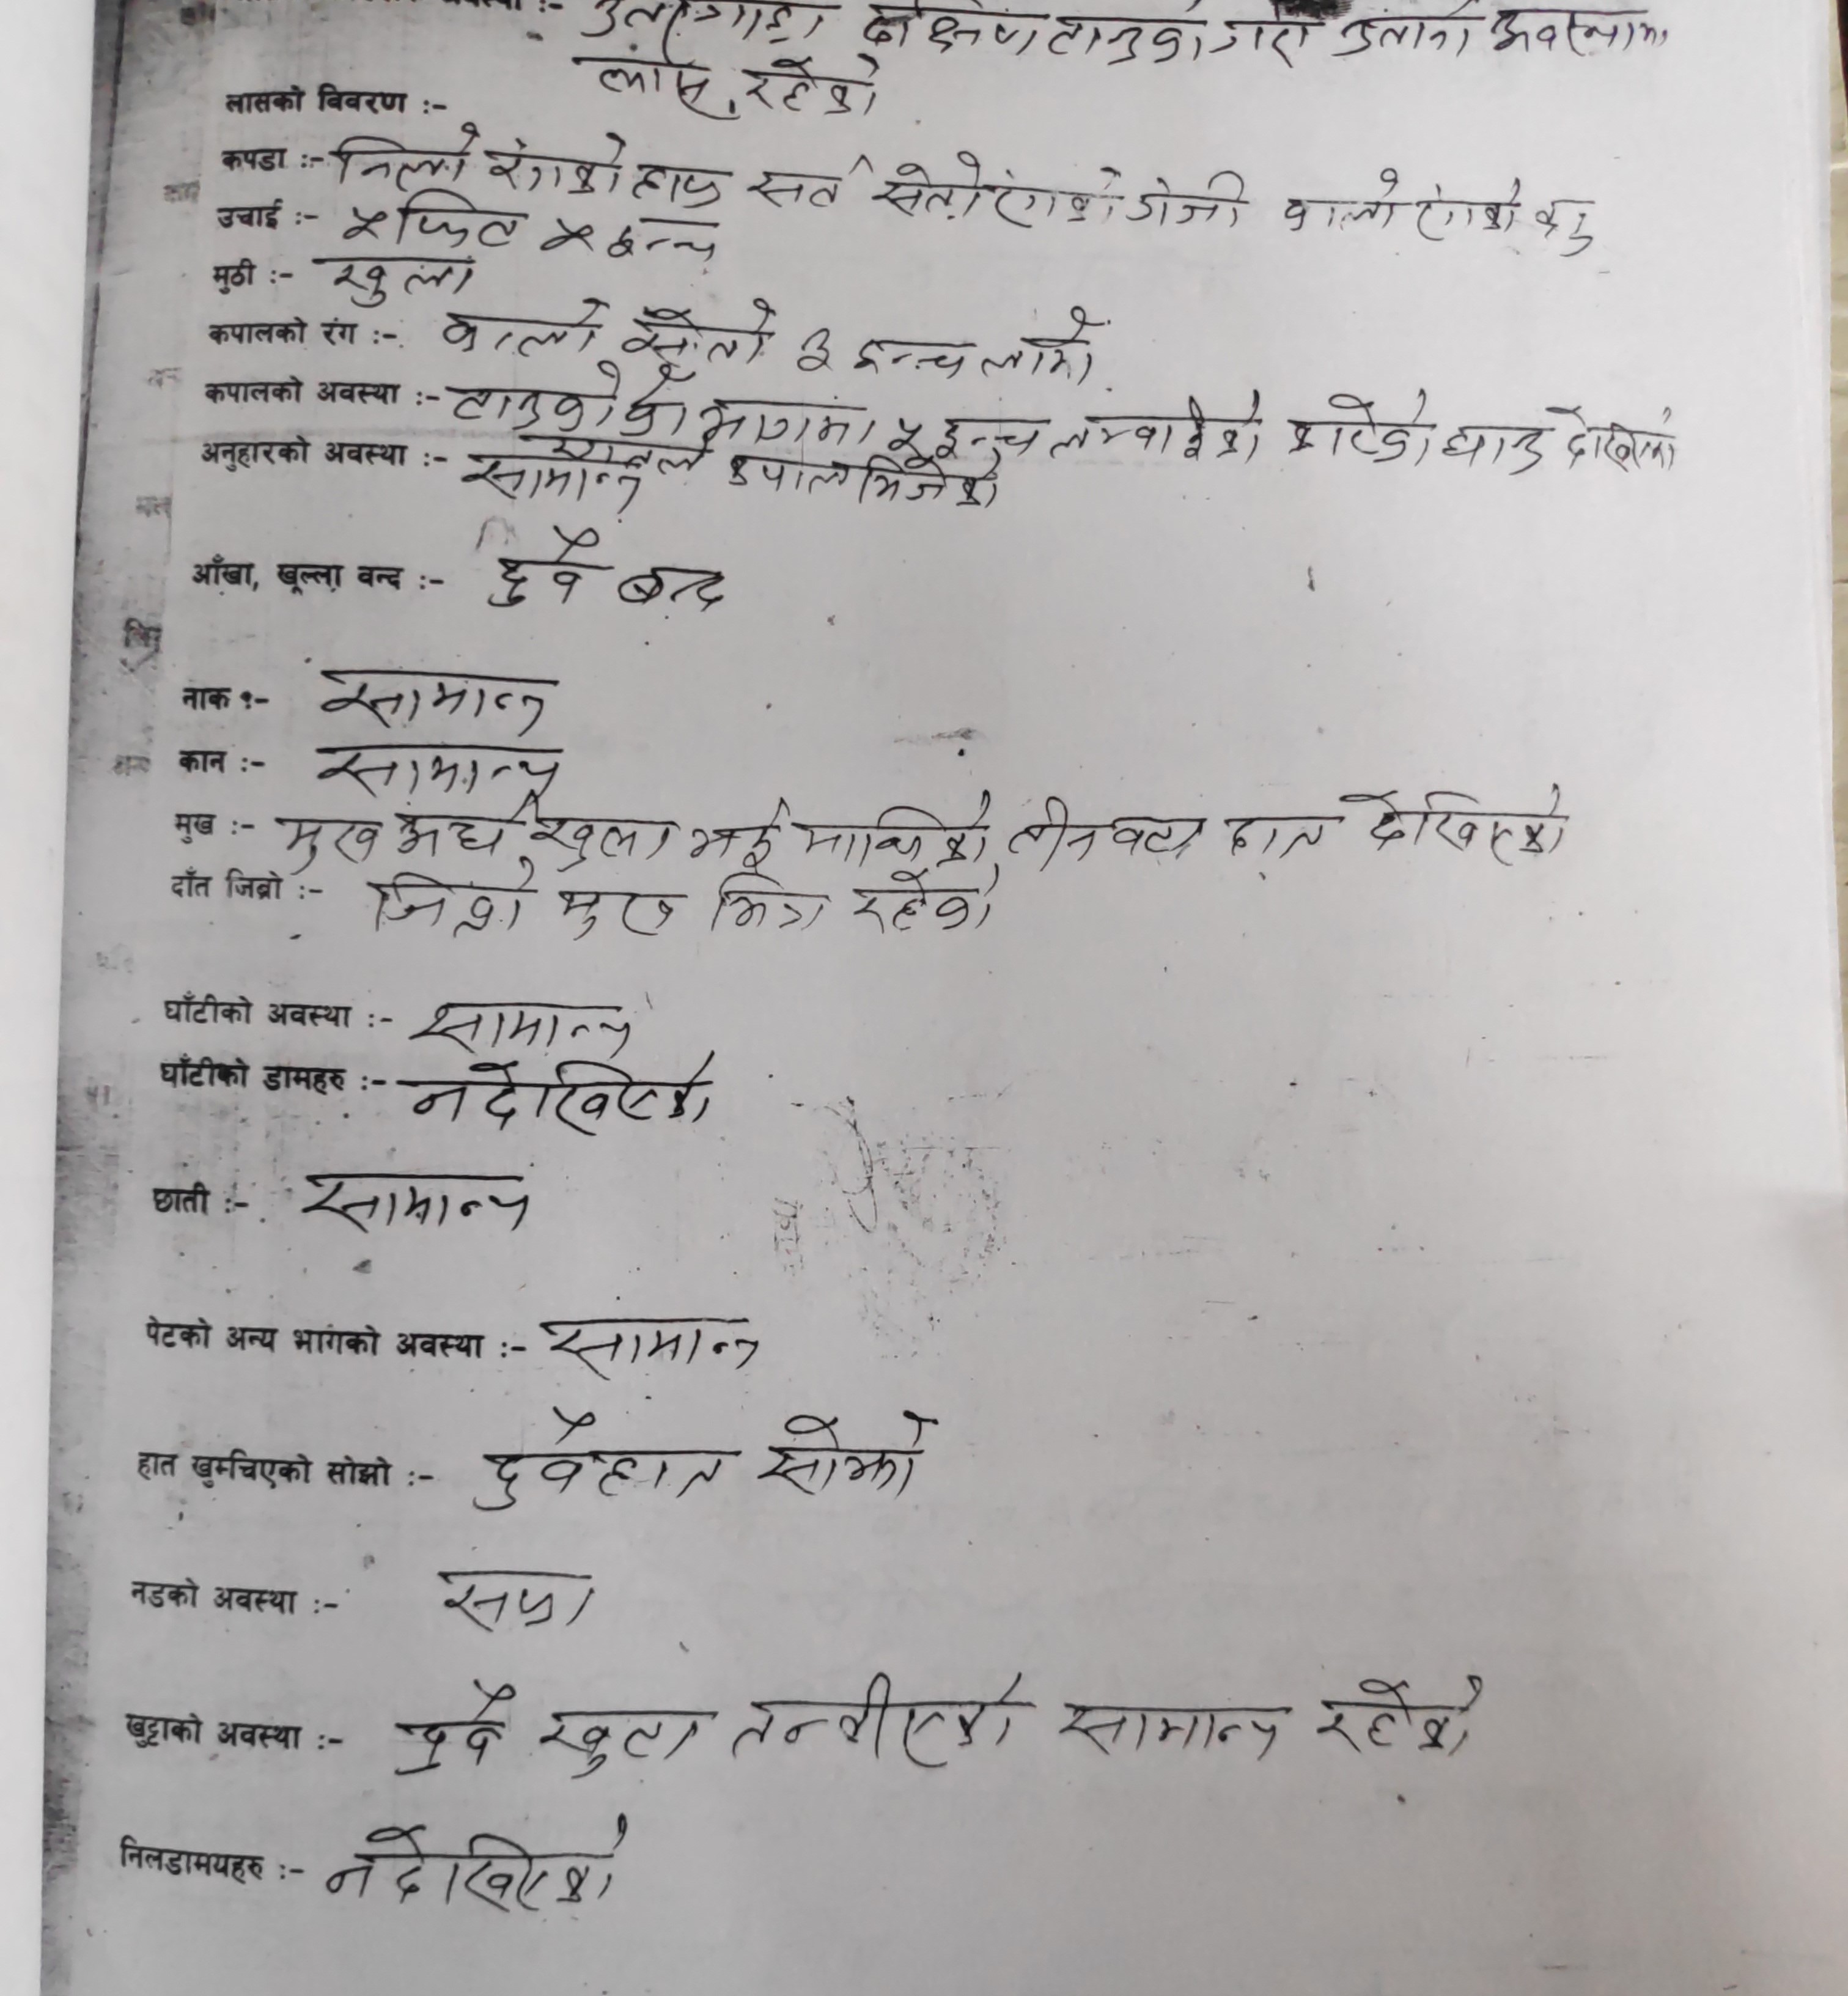 अवस्था :- उत्तर गोडा दक्षिण टाउको गरी उत्तानो अवस्थामा
लास रहेको
लासको विवरण :-
कपडा :- निलो रंगको हाफ सर्ट सेतो रंगको गंजी कालो रंगको कट्टु
उचाई :- ५ फिट ५ इन्च
मुठी :- खुला
कपालको रंग :- कालो सेतो ३ इन्च लामो
कपालको अवस्था :- टाउकोको भागमा ५ इन्च लम्बाईको काटेको घाउ देखिएको
रगतले कपाल भिजेको
अनुहारको अवस्था :- सामान्य
आँखा, खूल्ला वन्द :- दुवै बन्द
नाक :- सामान्य
कान :- सामान्य
मुख :- मुख अर्ध खुला भई माथिको तीनवटा दात देखिएको
दाँत जिब्रो :- जिब्रो मुख भित्र रहेको
घाँटीको अवस्था :- सामान्य
घाँटीको डामहरु :- नदेखिएको
छाती :- सामान्य
पेटको अन्य भागको अवस्था :- सामान्य
हात खुम्चिएको सोझो :- दुवै हात सोझो
नडको अवस्था :- सफा
खुट्टाको अवस्था :- दुवै खुटा तन्कीएको सामान्य रहेको
निलडामयहरु :- नदेखिएको